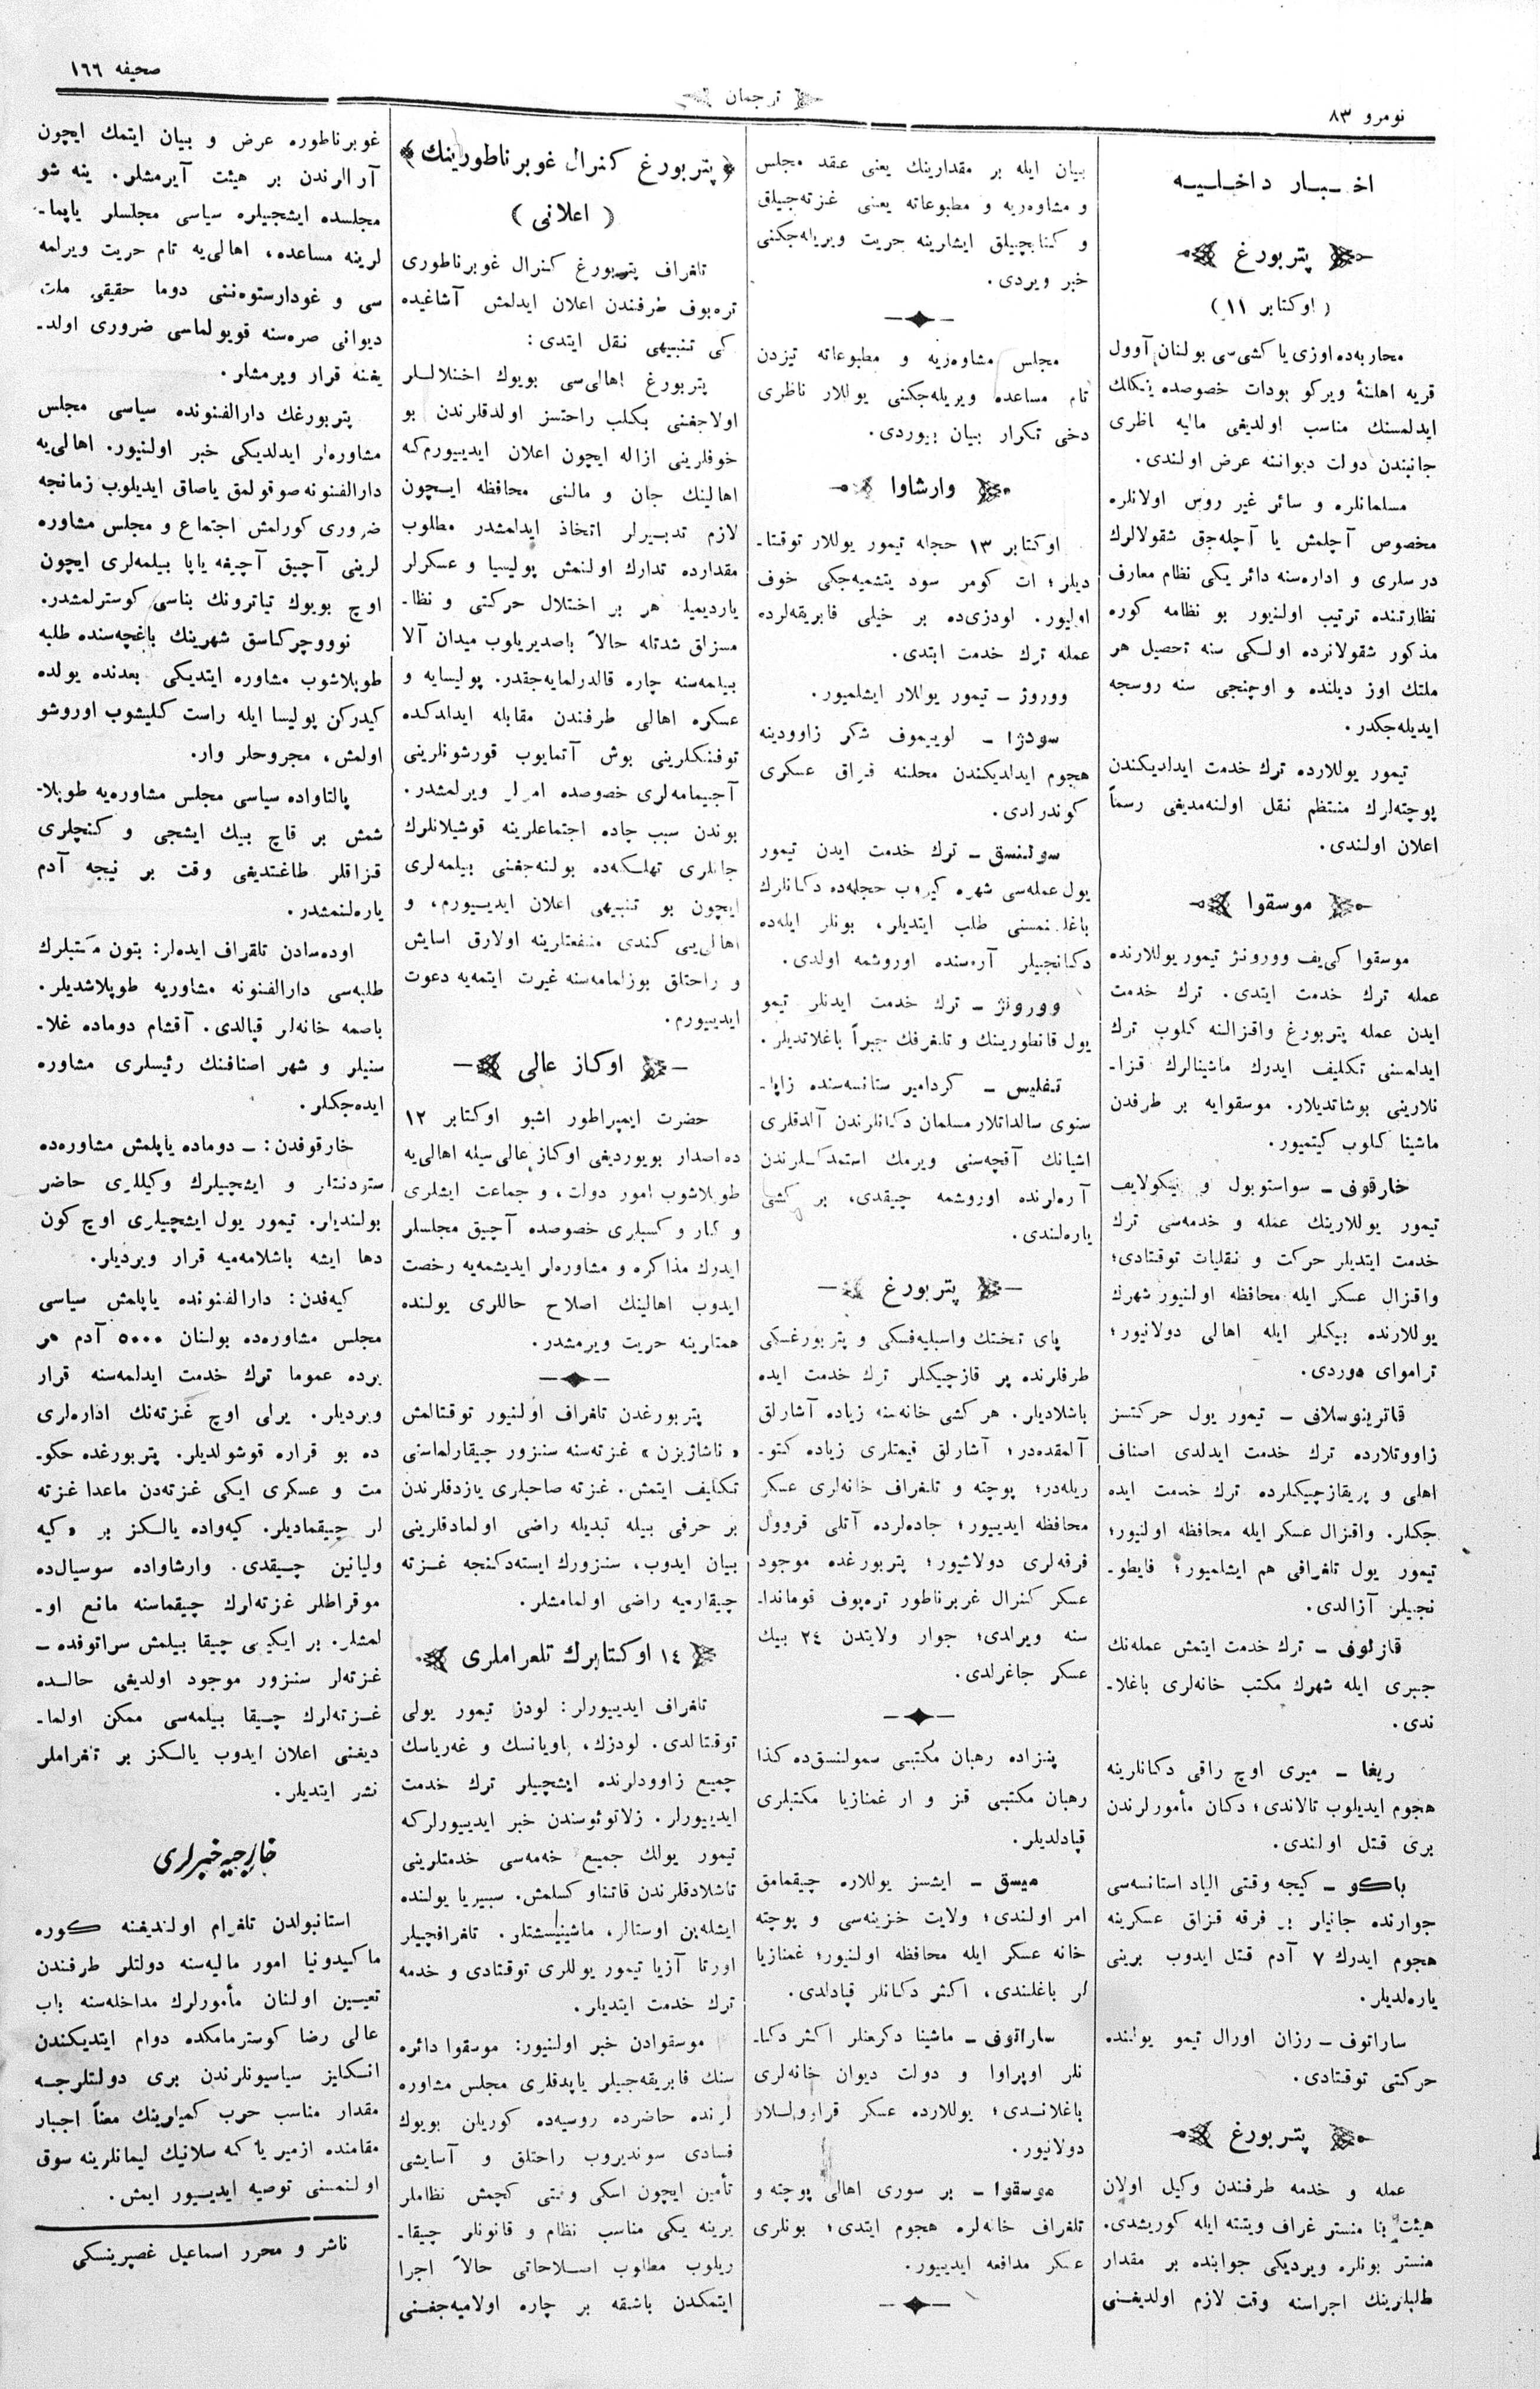 نومرو ٨٣
ترجمان
صحيفه ١٦٦
اخبار داخليه
پتربورغ
(اوكتابر ١١)
محاربه‌ده اوزى يا كشى‌سى بولنان آوول
قريه اهلنۀ ويركو بودات خصوصده يڭكلك
ايدلمسنك مناسب اولديغى ماليه ناظرى
جانبندن دولت ديواننه عرض اولندى.
مسلمانلره و سائر غير روس اولانلره
مخصوص آچلمش يا آچله‌جق شقولالرك
درسلرى و اداره‌سنه دائر يكى نظام معارف
نظارتنده ترتيب اولنيور بو نظامه كوره
مذكور شقولانرده اولكى سنه تحصيل هر
ملتك اوز ديلنده و اوچنجى سنه روسجه
ايديله‌جكدر.
تيمور يوللارده ترك خدمت ايدلديكندن
پوچته‌لرك منتظم نقل اولنه‌مديغى رسماً
اعلان اولندى.
موسقوا
موسقوا كى‌يف وورونژ تيمور يوللارنده
عمله ترك خدمت ايتدى. ترك خدمت
ايدن عمله پتربورغ واقزالنه كلوب ترك
ايدلمسنى تكليف ايدرك ماشينالرك قزا-
نلارينى بوشاتديلار. موسقوايه بر طرفدن
ماشينا كلوب كيتميور.
خارقوف ـ سواستوپول و نيكولايف
تيمور يوللارينك عمله و خدمه‌سى ترك
خدمت ايتديلر حركت و نقليات توقتادى؛
واقزال عسكر ايله محافظه اولنيور شهرك
يوللارنده بيكلر ايله اهالى دولانيور؛
تراموای دوردى.
قاترينوسلاف ـ تيمور يول حركتسز
زاووتلارده ترك خدمت ايدلدى اصناف
اهلى و پريقازچيكلرده ترك خدمت ايده
جكلر. واقزال عسكر ايله محافظه اولنيور؛
تيمور يول تلغرافى هم ايشلميور؛ فايطو-
نجيلر آزالدى.
قازلوف ـ ترك خدمت ايتمش عمله‌نك
جبرى ايله شهرك مكتب خانه‌لرى باغلا-
ندى.
ريغا ـ ميرى اوچ راقى دكانلرينه
هجوم ايديلوب تالاندى؛ دكان مأمورلرندن
برى قتل اولندى.
باكو ـ كيجه وقتى الياد استانسه‌سى
جوارنده جانيلر بر فرقه قزاق عسكرينه
هجوم ايدرك ٧ آدم قتل ايدوب برينى
ياره‌لديلر.
ساراتوف ـ رزان اورال تيمو يولنده
حركتى توقتادى.
پتربورغ
عمله و خدمه طرفندن وكيل اولان
هيئت بنا منستر غراف ويتته ايله كوريشدى.
منستر بونلره ويرديكى جوابنده بر مقدار
طلبلرينك اجراسنه وقت لازم اولديغنى
بيان ايله بر مقدارينك يعنى عقد مجلس
و مشاوره‌يه و مطبوعاته يعنى غزته‌جيلق
و كتابچيلق ايشلرينه حريت ويريله‌جكنى
خبر ويردى.
مجلس مشاوره‌يه و مطبوعاته تيزدن
تام مساعده ويريله‌جكنى يوللار ناظرى
دخى تكرار بيان بيوردى.
وارشاوا
اوكتابر ١٣ جمله تيمور يوللار توقتا-
ديلر؛ ات كومر سود يتشميه‌جكى خوف
اوليور. لودزى‌ده بر خيلى فابريقه‌لرده
عمله ترك خدمت ايتدى.
ووروژ ـ تيمور يوللار ايشلميور.
سودژا ـ لوبيموف شكر زاوودينه
هجوم ايدلديكندن محلنه قزاق عسكرى
كوندرلدى.
سولنسق ـ ترك خدمت ايدن تيمور
يول عمله‌سى شهره كيروب جمله‌ده دكانلرك
باغلانمسنى طلب ايتديلر، بونلر ايله‌ده
دكانجيلر آره‌سنده اوروشمه اولدى.
وورونژ ـ ترك خدمت ايدنلر تيمو
يول قانطورينك و تلغرفك جبراً باغلاتديلر.
تفليس ـ كردامير ستانسه‌سنده زاپا-
سنوى سالداتلار مسلمان دكانلرندن آلدقلرى
اشيانك آقچه‌سنى ويرمك استمدكلرندن
آره‌لرنده اوروشمه چيقدى، بر كشى
ياره‌لندى.
پتربورغ
پاى تختك واسيليه‌فسكى و پتربورغسكى
طرفلرنده پر قازچيكلر ترك خدمت ايده
باشلاديلر. هر كشى خانه‌سنه زياده آشارلق
آلمقده‌در؛ آشارلق قيمتلرى زياده كتو-
ريله‌در؛ پوچته و تلغراف خانه‌لرى عسكر
محافظه ايدييور؛ جاده‌لرده آتلى قروول
فرقه‌لرى دولاشيور؛ پتربورغده موجود
عسكر كنرال غوبرناطور تره‌پوف قوماندا-
سنه ويرلدى؛ جوار ولايتدن ٢٤ بيك
عسكر جاغرلدى.
پنزاده رهبان مكتبى سمولنسق‌ده كذا
رهبان مكتبى قز و ار غمنازيا مكتبلرى
قپادلديلر.
ميسق ـ ايشسز يوللاره چيقمامق
امر اولندى؛ ولايت خزينه‌سى و پوچته
خانه عسكر ايله محافظه اولنيور؛ غمنازيا
لر باغلندى، اكثر دكانلر قپادلدى.
ساراتوف ـ ماشينا دكرمنلر اكثر دكا-
نلر اوپراوا و دولت ديوان خانه‌لرى
باغلاندى؛ يوللارده عسكر قراووللار
دولانيور.
موسقوا ـ بر سورى اهالى پوچته و
تلغراف خانه‌لره هجوم ايتدى؛ بونلرى
عسكر مدافعه ايدييور.
﴿پتربورغ كنرال غوبرناطورينك﴾
(اعلانى)
تلغراف پتربورغ كنرال غوبرناطورى
تره‌پوف طرفندن اعلان ايدلمش آشاغيده
كى تنبيهى نقل ايتدى:
پتربورغ اهالى‌سى بويوك اختلاللر
اولاجغنى بكلب راحتسز اولدقلرندن بو
خوفلرينى ازاله ايچون اعلان ايدييورم‌كه
اهالينك جان و مالنى محافظه ايچون
لازم تدبيرلر اتخاذ ايدلمشدر مطلوب
مقدارده تدارك اولنمش پوليسيا و عسكرلر
يارديميله هر بر اختلال حركتى و نظا-
مسزلق شدتله حالاً باصديريلوب ميدان آلا
بيلمه‌سنه چاره قالدرلمايه‌جقدر. پوليسايه و
عسكره اهالى طرفندن مقابله ايدلدكده
توفنكلرينى بوش آتمايوب قورشونلرينى
آجيمامه‌لرى خصوصده امرلر ويرلمشدر.
بوندن سبب جاده اجتماعلرينه قوشيلانلرك
جانلرى تهلكه‌ده بولنه‌جغنى بيلمه‌لرى
ايچون بو تنبيهى اعلان ايدييورم، و
اهالى‌يى كندى منفعتلرينه اولارق اسايش
و راحتلق بوزلمامه‌سنه غيرت ايتمه‌يه دعوت
ايدييورم.
اوكاز عالى
حضرت ايمپراطور اشبو اوكتابر ١٢
ده اصدار بويورديغى اوكاز عالى‌سيله اهالى‌يه
طوپلاشوب امور دولت، و جماعت ايشلرى
و كار و كسبلرى خصوصده آچيق مجلسلر
ايدرك مذاكره و مشاوره‌لر ايديشمه‌يه رخصت
ايدوب اهالينك اصلاح حاللرى يولنده
همتلرينه حريت ويرمشدر.
پتربورغدن تلغراف اولنيور توقتالمش
«ناشاژيزن» غزته‌سنه سنزور چيقارلماسنى
تكليف ايتمش. غزته صاحبلرى يازدقلرندن
بر حرفى بيله تبديله راضى اولمادقلرينى
بيان ايدوب، سنزورك ايسته‌دكنجه غزته
چيقارميه راضى اولمامشلر.
١٤ اوكتابرك تلغراملرى
تلغراف ايدييورلر: لودز تيمور يولى
توقتالدى. لودزك، پاويانسك و غه‌رياسك
جميع زاوودلرنده ايشچيلر ترك خدمت
ايدييورلر. زلاتوئوسندن خبر ايدييورلركه
تيمور يولك جميع خه‌مه‌سى خدمتلرينى
تاشلادقلرندن قاتناو كسلمش. سيبيريا يولنده
ايشله‌ين اوستالر، ماشينيستلر. تلغرافچيلر
اورتا آزيا تيمور يوللرى توقتادى و خدمه
ترك خدمت ايتديلر.
موسقوادن خبر اولنيور: موسقوا دائره
سنك فابريقه‌جيلر ياپدقلرى مجلس مشاوره
لرنده حاضرده روسيه‌ده كوريلن بويوك
فسادى سونديروب راحتلق و آسايشى
تأمين ايچون اسكى وقتى كچمش نظاملر
يرينه يكى مناسب نظام و قانونلر چيقا-
ريلوب مطلوب اصلاحاتى حالاً اجرا
ايتمكدن باشقه بر چاره اولاميه‌جغنى
غوبرناطوره عرض و بيان ايتمك ايچون
آرالرندن بر هيئت آيرمشلر. ينه شو
مجلسده ايشجيلره سياسى مجلسلر ياپما-
لرينه مساعده، اهالى‌يه تام حريت ويرلمه
سى و غودارستوه‌ننى دوما حقيقى ملت
ديوانى صره‌سنه قويولماسى ضرورى اولد-
يغنه قرار ويرمشلر.
پتربورغك دارالفنونده سياسى مجلس
مشاوره‌لر ايدلديكى خبر اولنيور. اهالى‌يه
دارالفنونه صوقولمق ياصاق ايديلوب زمانجه
ضرورى كورلمش اجتماع و مجلس مشاوره
لرينى آچيق آچيغه ياپا بيلمه‌لرى ايچون
اوچ بويوك تياترونك بناسى كوسترلمشدر.
نوووچركاسق شهرينك باغچه‌سنده طلبه
طوپلاشوب مشاوره ايتديكى بعدنده يولده
كيدركن پوليسا ايله راست كليشوب اوروشو
اولمش، مجروحلر وار.
پالتاواده سياسى مجلس مشاوره‌يه طوپلا-
شمش بر قاچ بيك ايشجى و كنجلرى
قزاقلر طاغتديغى وقت بر نيجه آدم
ياره‌لنمشدر.
اوده‌سادن تلقراف ايده‌لر: بتون مكتبلرك
طلبه‌سى دارالفنونه مشاوريه طوپلاشديلر.
باصمه خانه‌لر قپالدى. آقشام دوماده غلا-
سنيلر و شهر اصنافنك رئيسلرى مشاوره
ايده‌جكلر.
خارقوفدن: ـ دوماده ياپلمش مشاوره‌ده
ستودنتلر و ايشچيلرك وكيللرى حاضر
بولنديلر. تيمور يول ايشچيلرى اوچ كون
دها ايشه باشلامه‌ميه قرار ويرديلر.
كيه‌فدن: دارالفنونده ياپلمش سياسى
مجلس مشاوره‌ده بولنان ٥٠٠٠ آدم هر
يرده عموما ترك خدمت ايدلمه‌سنه قرار
ويرديلر. يرلى اوچ غزته‌نك اداره‌لرى
ده بو قراره قوشولديلر. پتربورغده حكو-
مت و عسكرى ايكى غزته‌دن ماعدا غزته
لر چيقماديلر. كيه‌واده يالكز بر «كيه
وليانين چيقدى. وارشاواده سوسيال‌ده
موقراطلر غزته‌لرك چيقماسنه مانع او-
لمشلر. بر ايكيسى چيقا بيلمش سراتوفده ـ
غزته‌لر سنزور موجود اولديغى حالده
غزته‌لرك چيقا بيلمه‌سى ممكن اولما-
ديغنى اعلان ايدوب يالكز بر تلغراملر
نشر ايتديلر.
خارجيه خبرلرى
استانبولدن تلغرام اولنديغنه كوره
ماكيدونيا امور ماليه‌سنه دولتلر طرفندن
تعيين اولنان مأمورلرك مداخله‌سنه باب
عالى رضا كوسترمامكده دوام ايتديكندن
انكليز سياسيونلرندن برى دولتلرجه
مقدار مناسب حرب كميلرينك معناً اجبار
مقامنده ازمير يا كه سلانيك ليمانلرينه سوق
اولنمسنى توصيه ايدييور ايمش.
ناشر و محرر اسماعيل غصپرينسكى